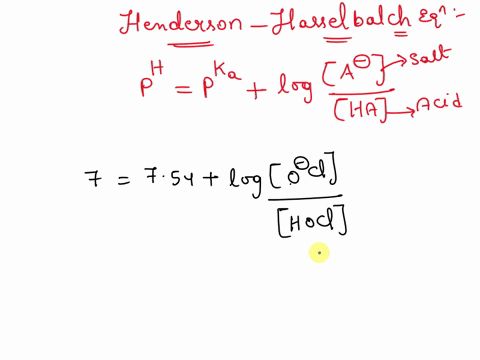 Henderson - Hasselbalch Eqⁿ :-
pH = pKa + log [A⊖] → Salt
[HA] → Acid
7 = 7.54 + log [O⊖Cl]
[HOCl]